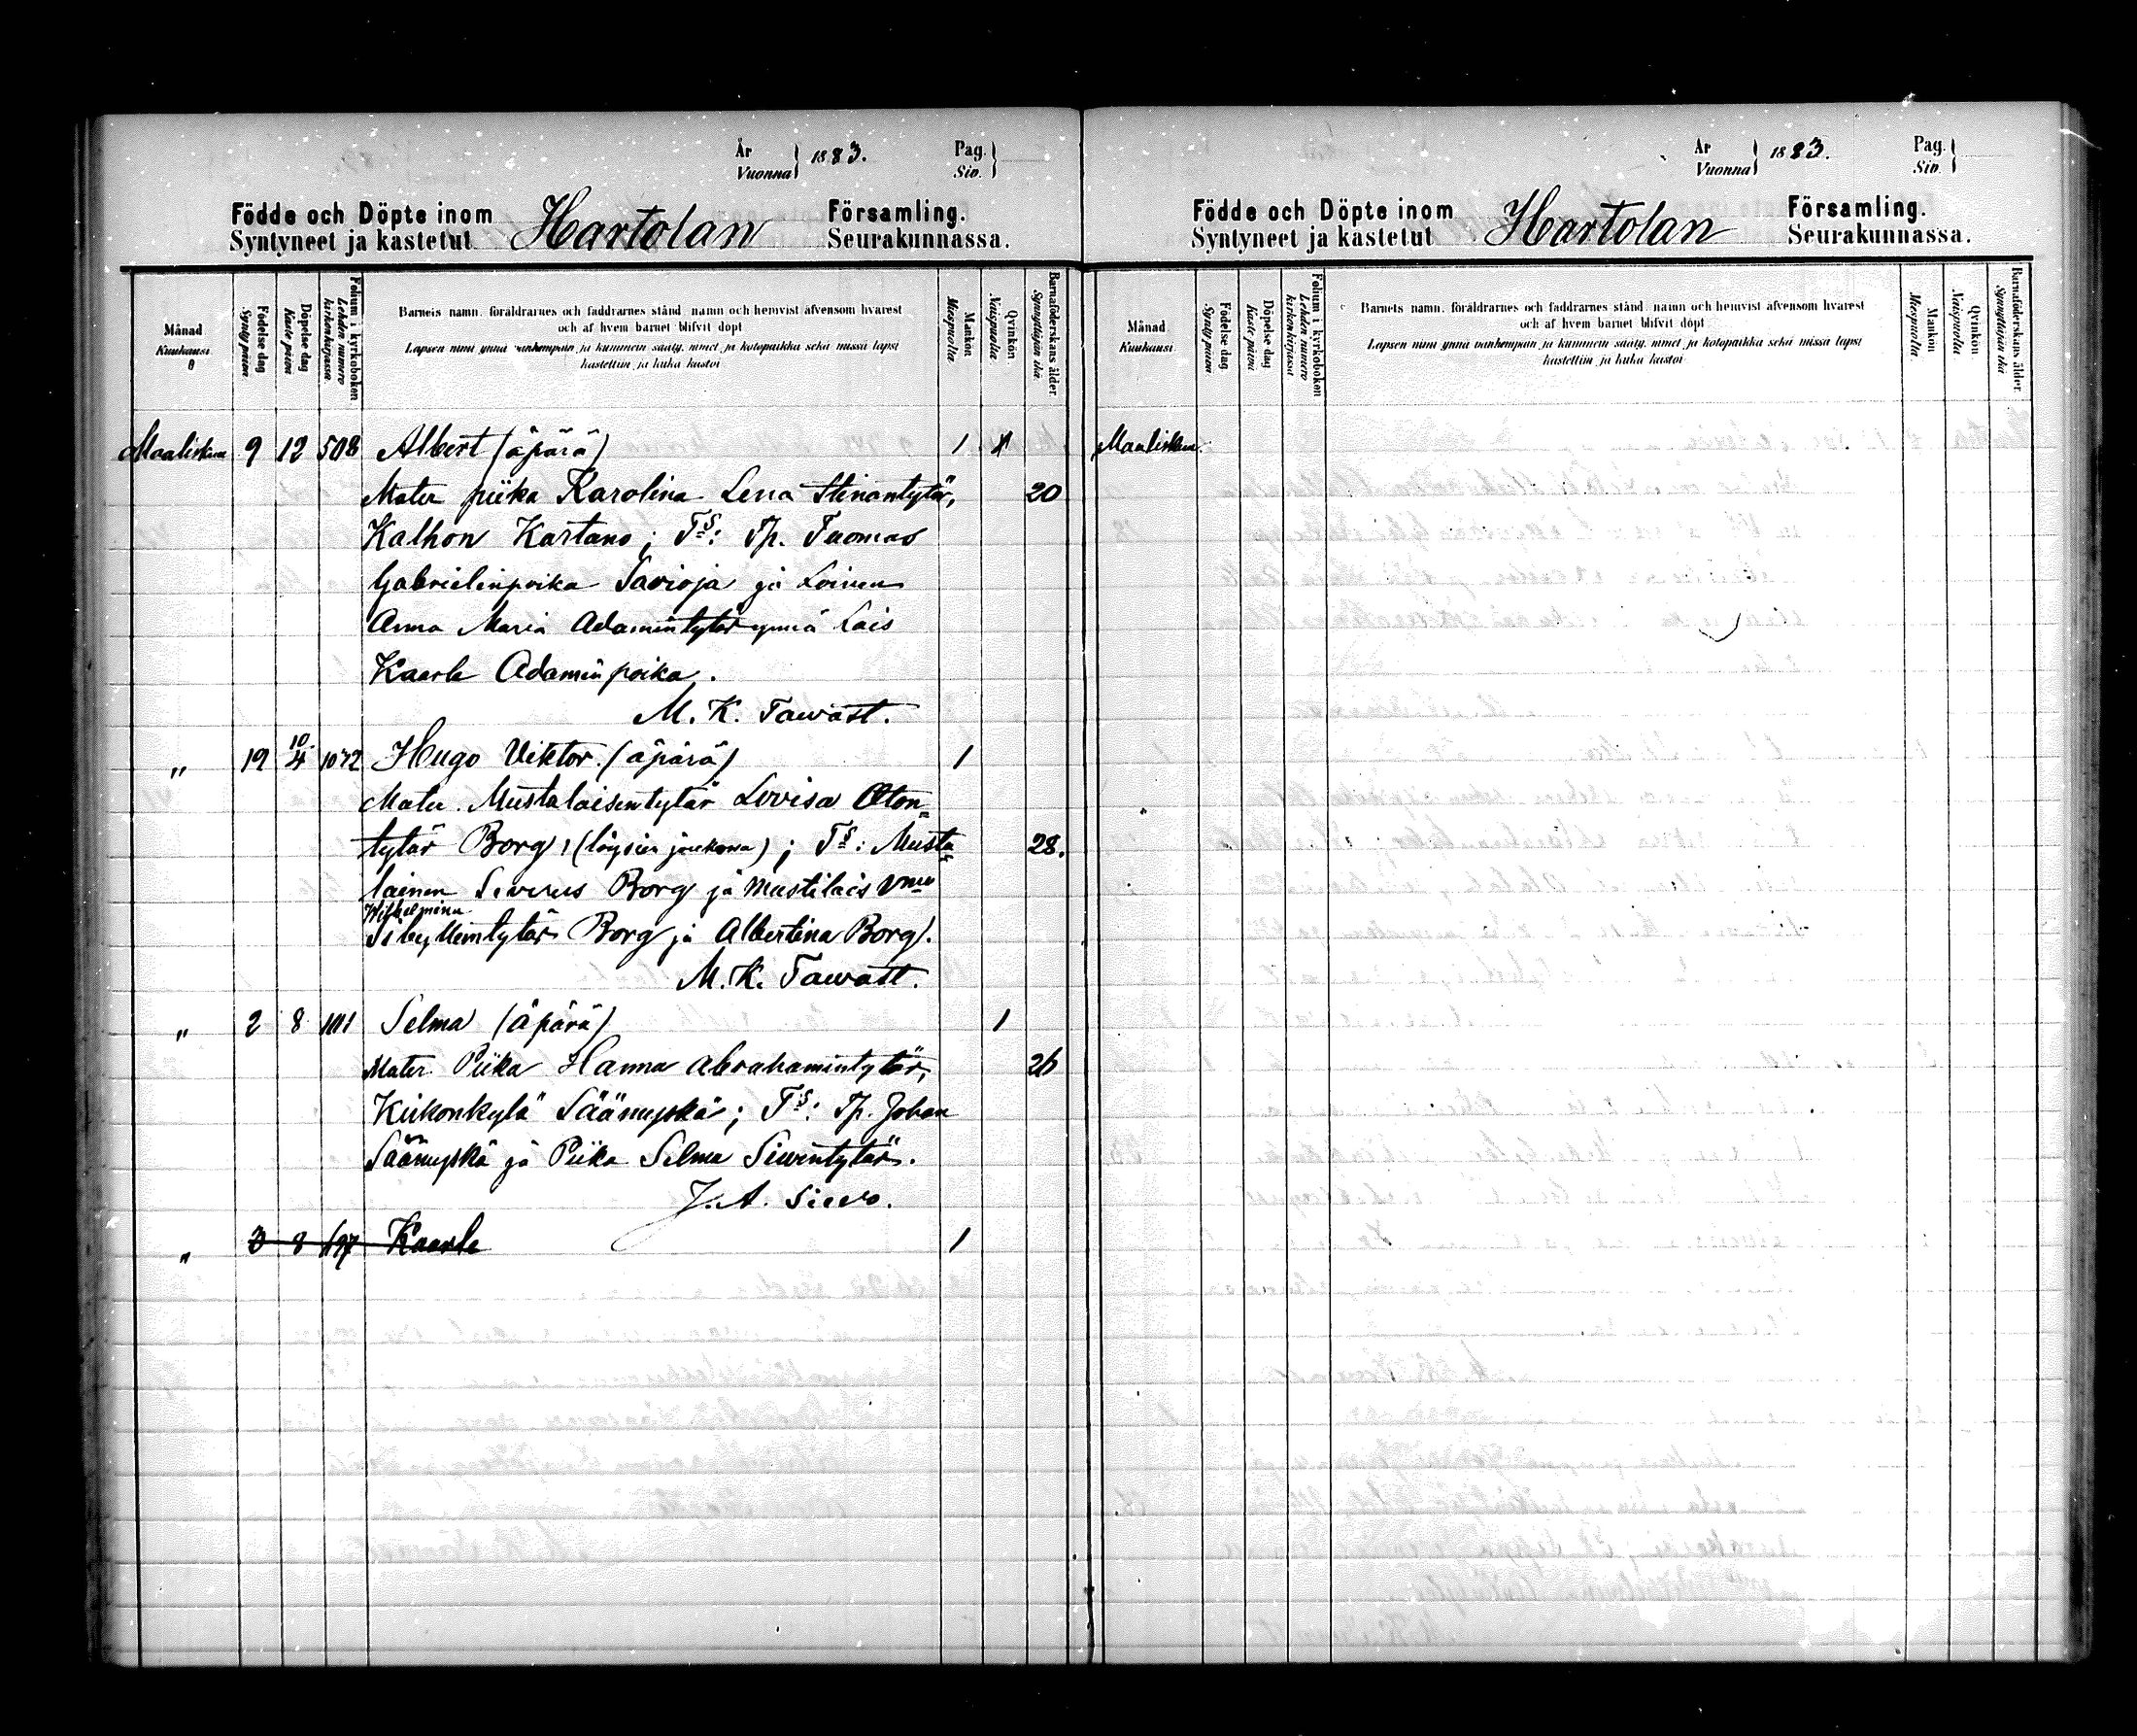 År
Vuonna 1883.
Pag.
Siv.
Födde och Döpte inom Hartolan Församling.
Syntyneet ja kastetut Seurakunnassa.
Månad
Kuukausi
Födelse dag
Synty päivä
Döpelse dag
Kaste päivä
Folium i kyrkoboken
Lehden numero kirkonkirjassa
Barnets namn, föräldrarnes och faddrarnes stånd, namn och hemvist äfvensom hvarest
och af hvem barnet blifvit döpt
Lapsen nimi ynnä vanhempain ja kummein sääty, nimet ja kotopaikka sekä missä lapsi
kastettiin ja kuka kastoi
Mankön
Miespuolia
Qvinkön
Naispuolia
Barnaföderskans ålder
Synnyttäjän ikä
Maaliskuu 9 12 508 Albert (äpärä) 1
Mater piika Karolina Lena Stinantytär, 20
Kalhon Kartano; Ts: Tp. Tuomas
Gabrielinpoika Savioja ja Loinen
Anna Maria Adamintytär ynnä Lois
Kaarle Adaminpoika.
M. K. Tawast.
" 19 10/4 1072 Hugo Viktor. (äpärä) 1
Mater. Mustalaisentytär Lovisa Oton
tytär Borg, (löysien joukossa); Ts: Musta 28.
lainen Severus Borg ja mustilais vmo
Wilhelmina
Borg ja Albertina Borg.
M. K. Tawast.
" 2 8 101 Selma (äpärä) 1
Mater Piika Hanna Abrahamintytär, 26
Kirkonkylä Säänyskä; Ts: Tp. Johan
Säänyskä ja Piika Selma Siwintytär.
J. A. Siewo.
" 3 8 197 Kaarle 1
År
Vuonna 1883.
Pag.
Siv.
Födde och Döpte inom Hartolan Församling.
Syntyneet ja kastetut Seurakunnassa.
Månad
Kuukausi
Födelse dag
Synty päivä
Döpelse dag
Kaste päivä
Folium i kyrkoboken
Lehden numero kirkonkirjassa
Barnets namn, föräldrarnes och faddrarnes stånd, namn och hemvist äfvensom hvarest
och af hvem barnet blifvit döpt
Lapsen nimi ynnä vanhempain ja kummein sääty, nimet ja kotopaikka sekä missä lapsi
kastettiin ja kuka kastoi
Mankön
Miespuolia
Qvinkön
Naispuolia
Barnaföderskans ålder
Synnyttäjän ikä
Maaliskuu